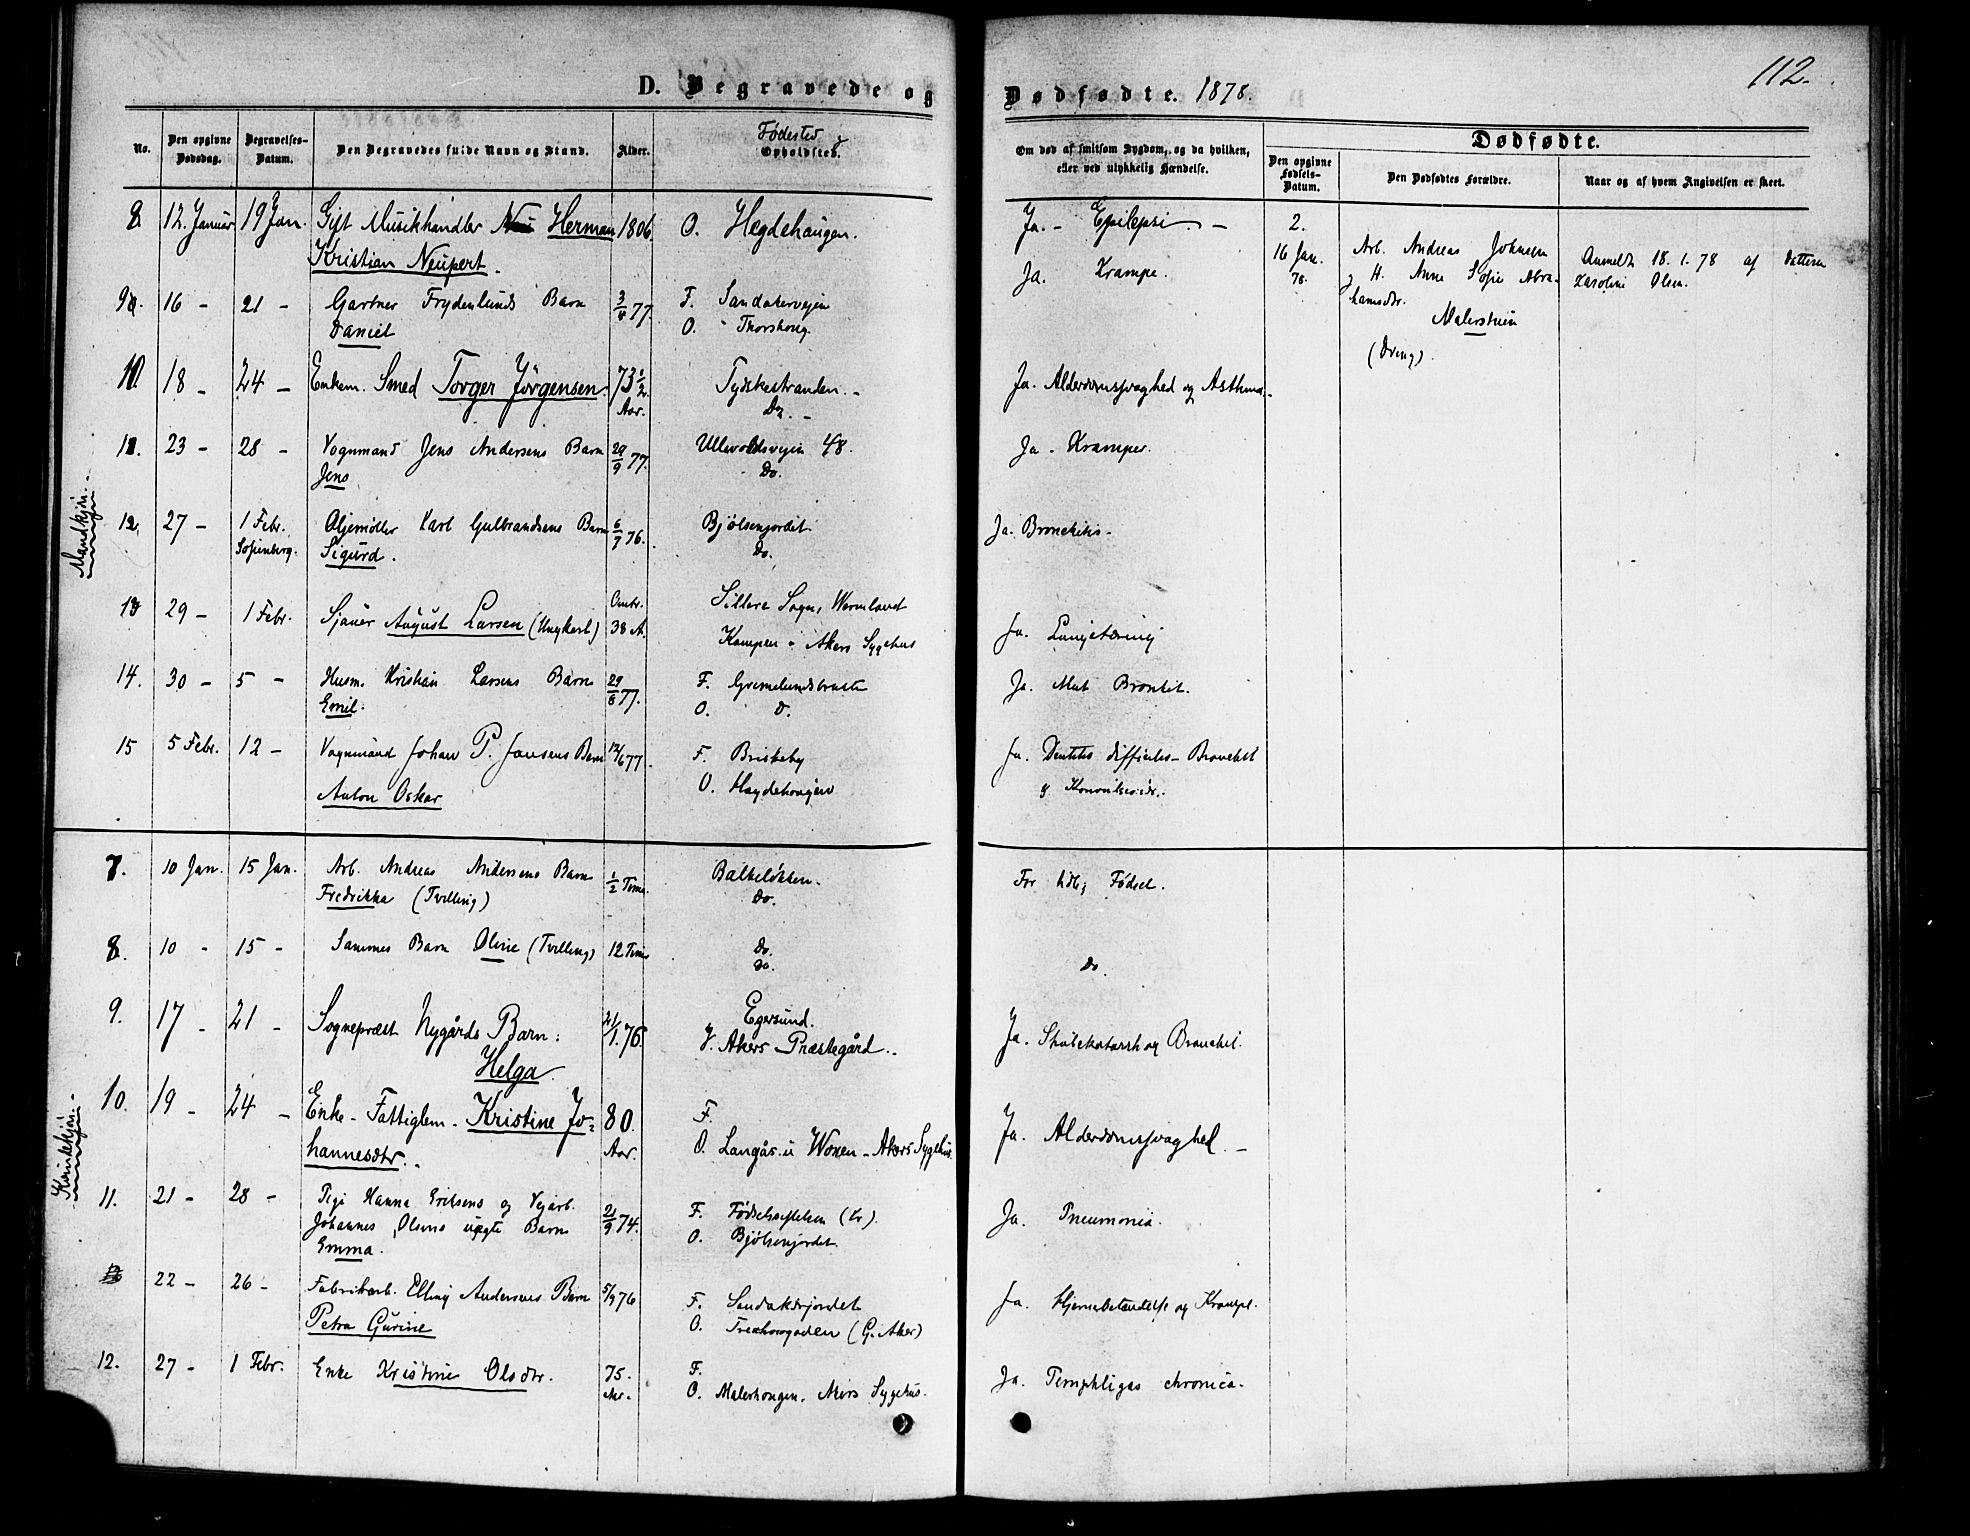 112.
D. Begravede og Dødfødte. 1878.
No.
Den opgivne Dødsdag.
Begravelses-Datum.
Den Begravedes fulde Navn og Stand.
Alder.
Fødested &
Opholdsted.
Om død af smitsom Sygdom, og da hvilken, eller ved ulykkelig Hændelse.
Dødfødte.
Den opgivne Fødsels-Datum.
Den Dødfødtes Forældre.
Naar og af hvem Angivelsen er skeet.
Mandkjön.
8. 12. Januar 19 Jan. Gift Musikhandler Herman 1806. O. Hegdehaugen. Ja. - Epilepsi. -
Kristian Neupert.
2.
16 Jan. 78. Arb. Andreas Johnsen
& H. Anne Sofie Abra-
hamsdtr.
Malerstuen
(Dreng).
Anmeldt 18. 1. 78 af Datteren
Karoline Olsen.
9. 16 - 21 - Gartner Frydenlunds Barn 3/4 77. F. Sandakerveien Ja. Krampe.
Daniel O. Thorshoug.
10. 18 - 24 - Enkem. Smed Torger Jörgensen. 73 1/2 Aar. Tydskestranden. - Ja. Alderdomssvaghed og Asthma.
Do. -
11. 23 - 28 - Vognmand Jens Andersens Barn 29/9 77. Ullevoldsveien 48. Ja. Kramper.
Jens Do.
12. 27 - 1 Febr. Oljemöller Karl Gulbrandsens Barn 6/7 76. Bjölsenjordet Ja. Bronchitis.
Sofienberg. Sigurd. Do.
13 29 - 1 Febr. Sjauer August Larsen (Ungkarl) Omtr. 38 A. Sillerø Sogn, Wermland Ja. Lungetæring
Kampen - Akers Sygehus
14. 30 - 5 - Husm. Kristian Larsens Barn 29/8 77. F. Grimelundsbraaten Ja. Akut Bronkit.
Emil. O. D.
15 5 Febr. 12 - Vognmand Johan P. Jansens Barn 12/6 77. F. Briskeby Ja. Dentitio difficilis - Bronchit
Anton Oskar O. Hægdehougen & Konvulsioner.
Kvindekjön.
7. 10 Jan. 15 Jan. Arb. Andreas Andersens Barn 1/2 Time. Balkeløkken. For tidlig Födsel.
Fredrikka (Tvilling) Do.
8. 10 - 15 - Sammes Barn Oline (Tvilling) 12 Timer Do. Do.
Do.
9. 17 - 21 - Sognepræst Nygårds Barn: 21/1 76. Egersund. Ja. Strubekatarrh og Bronchit.
Helga. Akers Præstegård.
10. 19 - 24 - Enke - Fattiglem - Kristine Jo- 80. Aar. F. Ja. Alderdomssvaghed. -
hannesdtr. O. Langås i Woxen - Akers Sygehus.
11. 21 - 28 - Pige Hanna Eriksens og Vejarb. 21/9 74. F. Födselsstiftelsen (Kr). Ja. Pneumonia.
Johannes Olsens uægte Barn O. Bjölsenjordet.
Emma.
22 - 26 - Fabrikarb. Elling Andersens Barn 5/9 76 F. Sandakerjordet Ja. Hjernebetændelse og Krampe.
Petra Gurine O. (G. Aker)
12. 27 - 1 Febr. Enke Kristine Olsdtr. 75. Aar. F. Ja. Pemphigus chronica.
O. Malerhougen. Akers Sygehus.